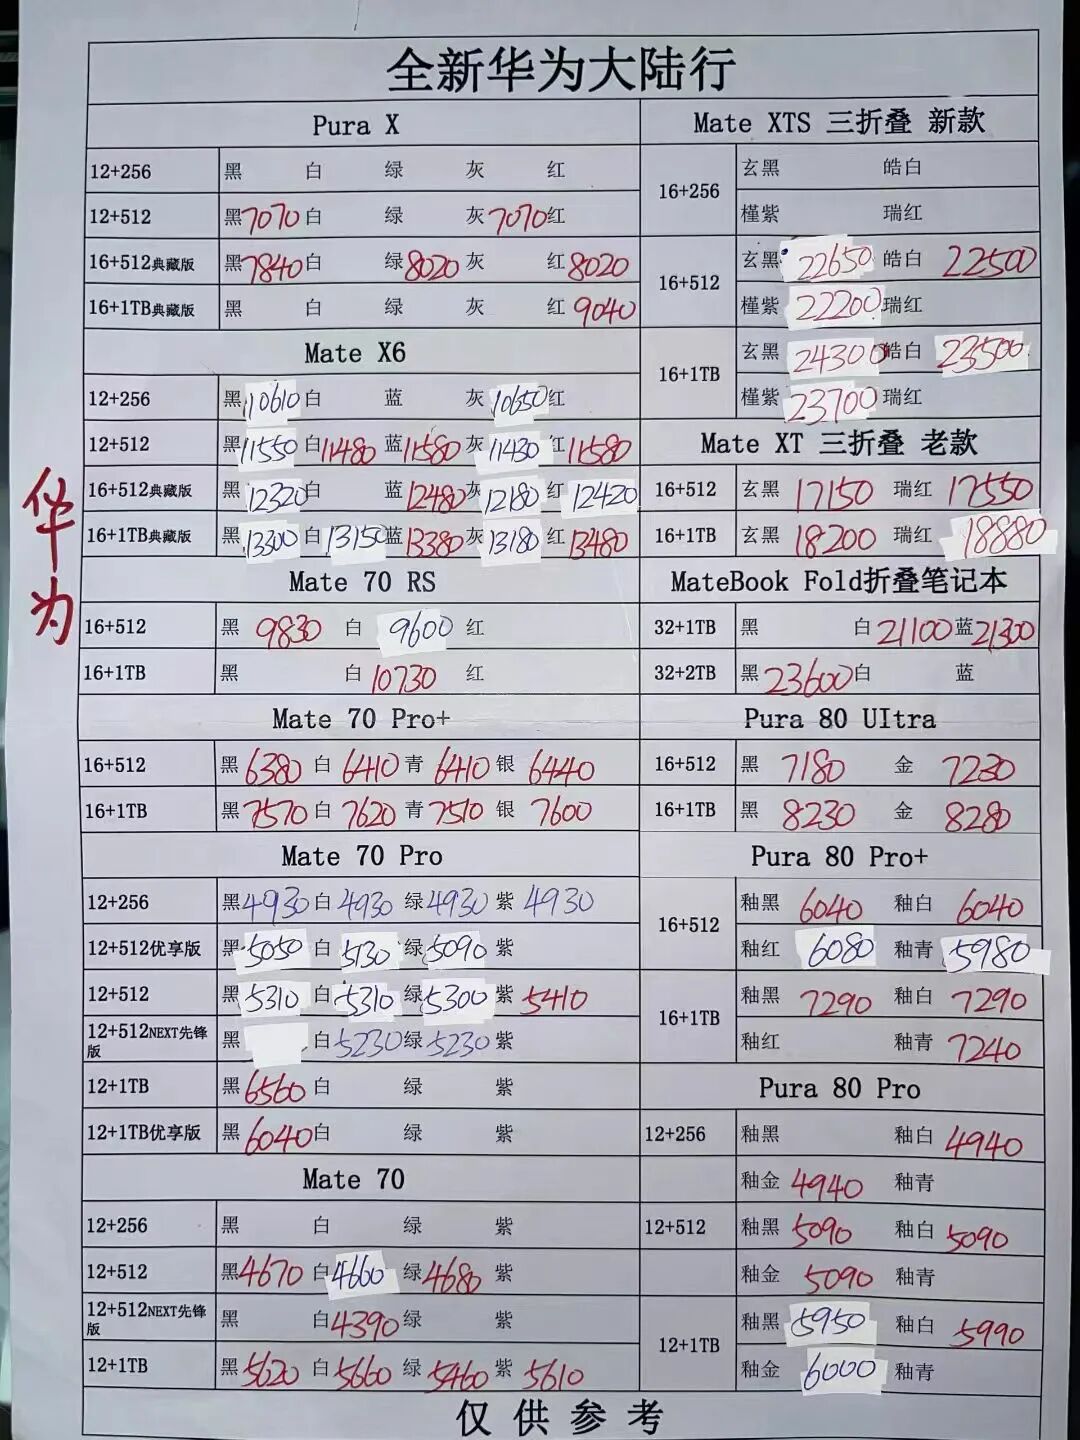 华为
全新华为大陆行
Pura X
12+256 黑 白 绿 灰 红
12+512 黑 7070 白 绿 灰 7070 红
16+512典藏版 黑 7840 白 绿 8020 灰 红 8020
16+1TB典藏版 黑 白 绿 灰 红 9040
Mate X6
12+256 黑 10610 白 蓝 灰 10650 红
12+512 黑 11550 白 11480 蓝 11580 灰 11430 红 11580
16+512典藏版 黑 12320 白 蓝 12480 灰 12180 红 12420
16+1TB典藏版 黑 13300 白 13150 蓝 13380 灰 13180 红 13480
Mate 70 RS
16+512 黑 9830 白 9600 红
16+1TB 黑 白 10730 红
Mate 70 Pro+
16+512 黑 6380 白 6410 青 6410 银 6440
16+1TB 黑 7570 白 7620 青 7510 银 7600
Mate 70 Pro
12+256 黑 4930 白 4930 绿 4930 紫 4930
12+512优享版 黑 5050 白 5130 绿 5090 紫
12+512 黑 5310 白 5310 绿 5300 紫 5410
12+512NEXT先锋版 黑 白 5230 绿 5230 紫
12+1TB 黑 6560 白 绿 紫
12+1TB优享版 黑 6040 白 绿 紫
Mate 70
12+256 黑 白 绿 紫
12+512 黑 4670 白 4660 绿 4680 紫
12+512NEXT先锋版 黑 白 4390 绿 紫
12+1TB 黑 5620 白 5660 绿 5460 紫 5610
Mate XTS 三折叠 新款
16+256 玄黑 皓白
槿紫 瑞红
16+512 玄黑 22650 皓白 22500
槿紫 22200 瑞红
16+1TB 玄黑 24300 皓白 23500
槿紫 23700 瑞红
Mate XT 三折叠 老款
16+512 玄黑 17150 瑞红 17550
16+1TB 玄黑 18200 瑞红 18880
MateBook Fold折叠笔记本
32+1TB 黑 白 21100 蓝 21300
32+2TB 黑 23600 白 蓝
Pura 80 UItra
16+512 黑 7180 金 7230
16+1TB 黑 8230 金 8280
Pura 80 Pro+
16+512 釉黑 6040 釉白 6040
釉红 6080 釉青 5980
16+1TB 釉黑 7290 釉白 7290
釉红 釉青 7240
Pura 80 Pro
12+256 釉黑 釉白 4940
釉金 4940 釉青
12+512 釉黑 5090 釉白 5090
釉金 5090 釉青
12+1TB 釉黑 5950 釉白 5990
釉金 6000 釉青
仅供参考